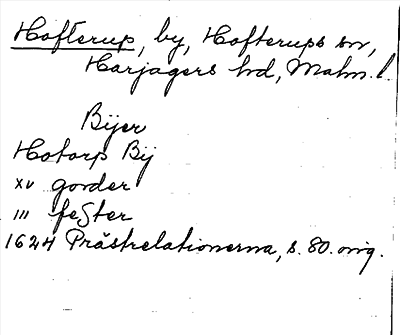 Hofterup, by, Hofterups sn,
Harjagers hd, Malm. l.
Bijer
Hotorp Bij
xv gorder
III fester
1624 Prästrelationerna, s. 80. orig.